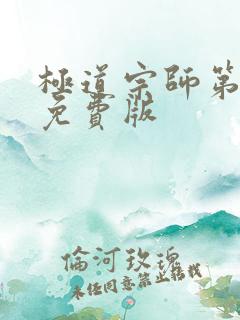 極道宗師第
免費版
倫河玫瑰
未經同意禁止轉載